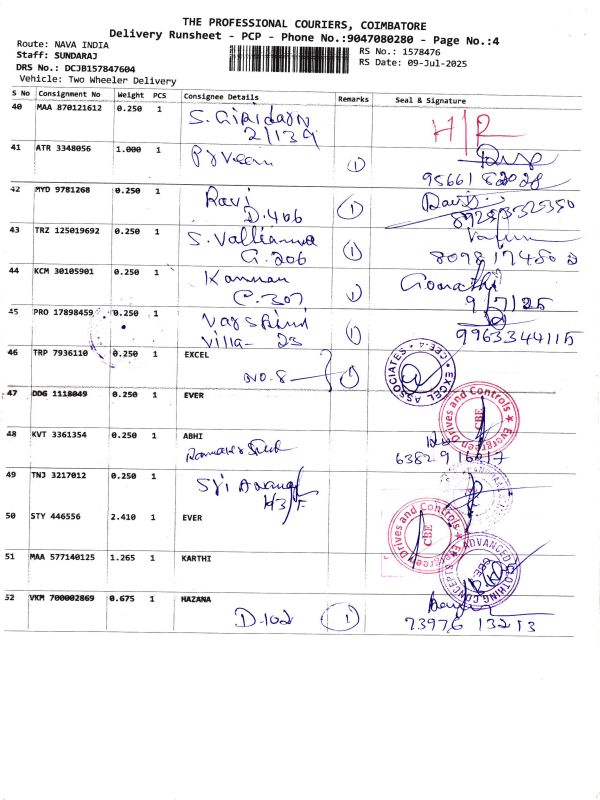 THE PROFESSIONAL COURIERS, COIMBATORE
Delivery Runsheet - PCP - Phone No.:9047080280 - Page No.:4
Route: NAVA INDIA
Staff: SUNDARAJ
DRS No.: DCJB157847604
Vehicle: Two Wheeler Delivery
RS No.: 1578476
RS Date: 09-Jul-2025
S No Consignment No Weight PCS Consignee Details Remarks Seal & Signature
40 MAA 870121612 0.250 1 S. Giridaran H/R
2/139
41 ATR 3348056 1.000 1 Praveen 1
95661 82028
42 MYD 9781268 0.250 1 Ravi 1
D.406
43 TRZ 125019692 0.250 1 S. Valliamma 1
G.206
44 KCM 30105901 0.250 1 Kannan 1 Gomathi
C.307 9/7/25
45 PRO 17898459 0.250 1 1
Villa- 23 9963344115
46 TRP 7936110 0.250 1 EXCEL 1
NO.8
EXCEL ASSOCIATES CBE-4
47 DDG 1118049 0.250 1 EVER
Evergreen Drives and Controls CBE
48 KVT 3361354 0.250 1 ABHI
49 TNJ 3217012 0.250 1 Sri
50 STY 446556 2.410 1 EVER
Evergreen Drives and Controls CBE
51 MAA 577140125 1.265 1 KARTHI
ADVANCED CLOTHING CONCEPTS CBE
52 VKM 700002869 0.675 1 HAZANA
D.102 1 73976 13213